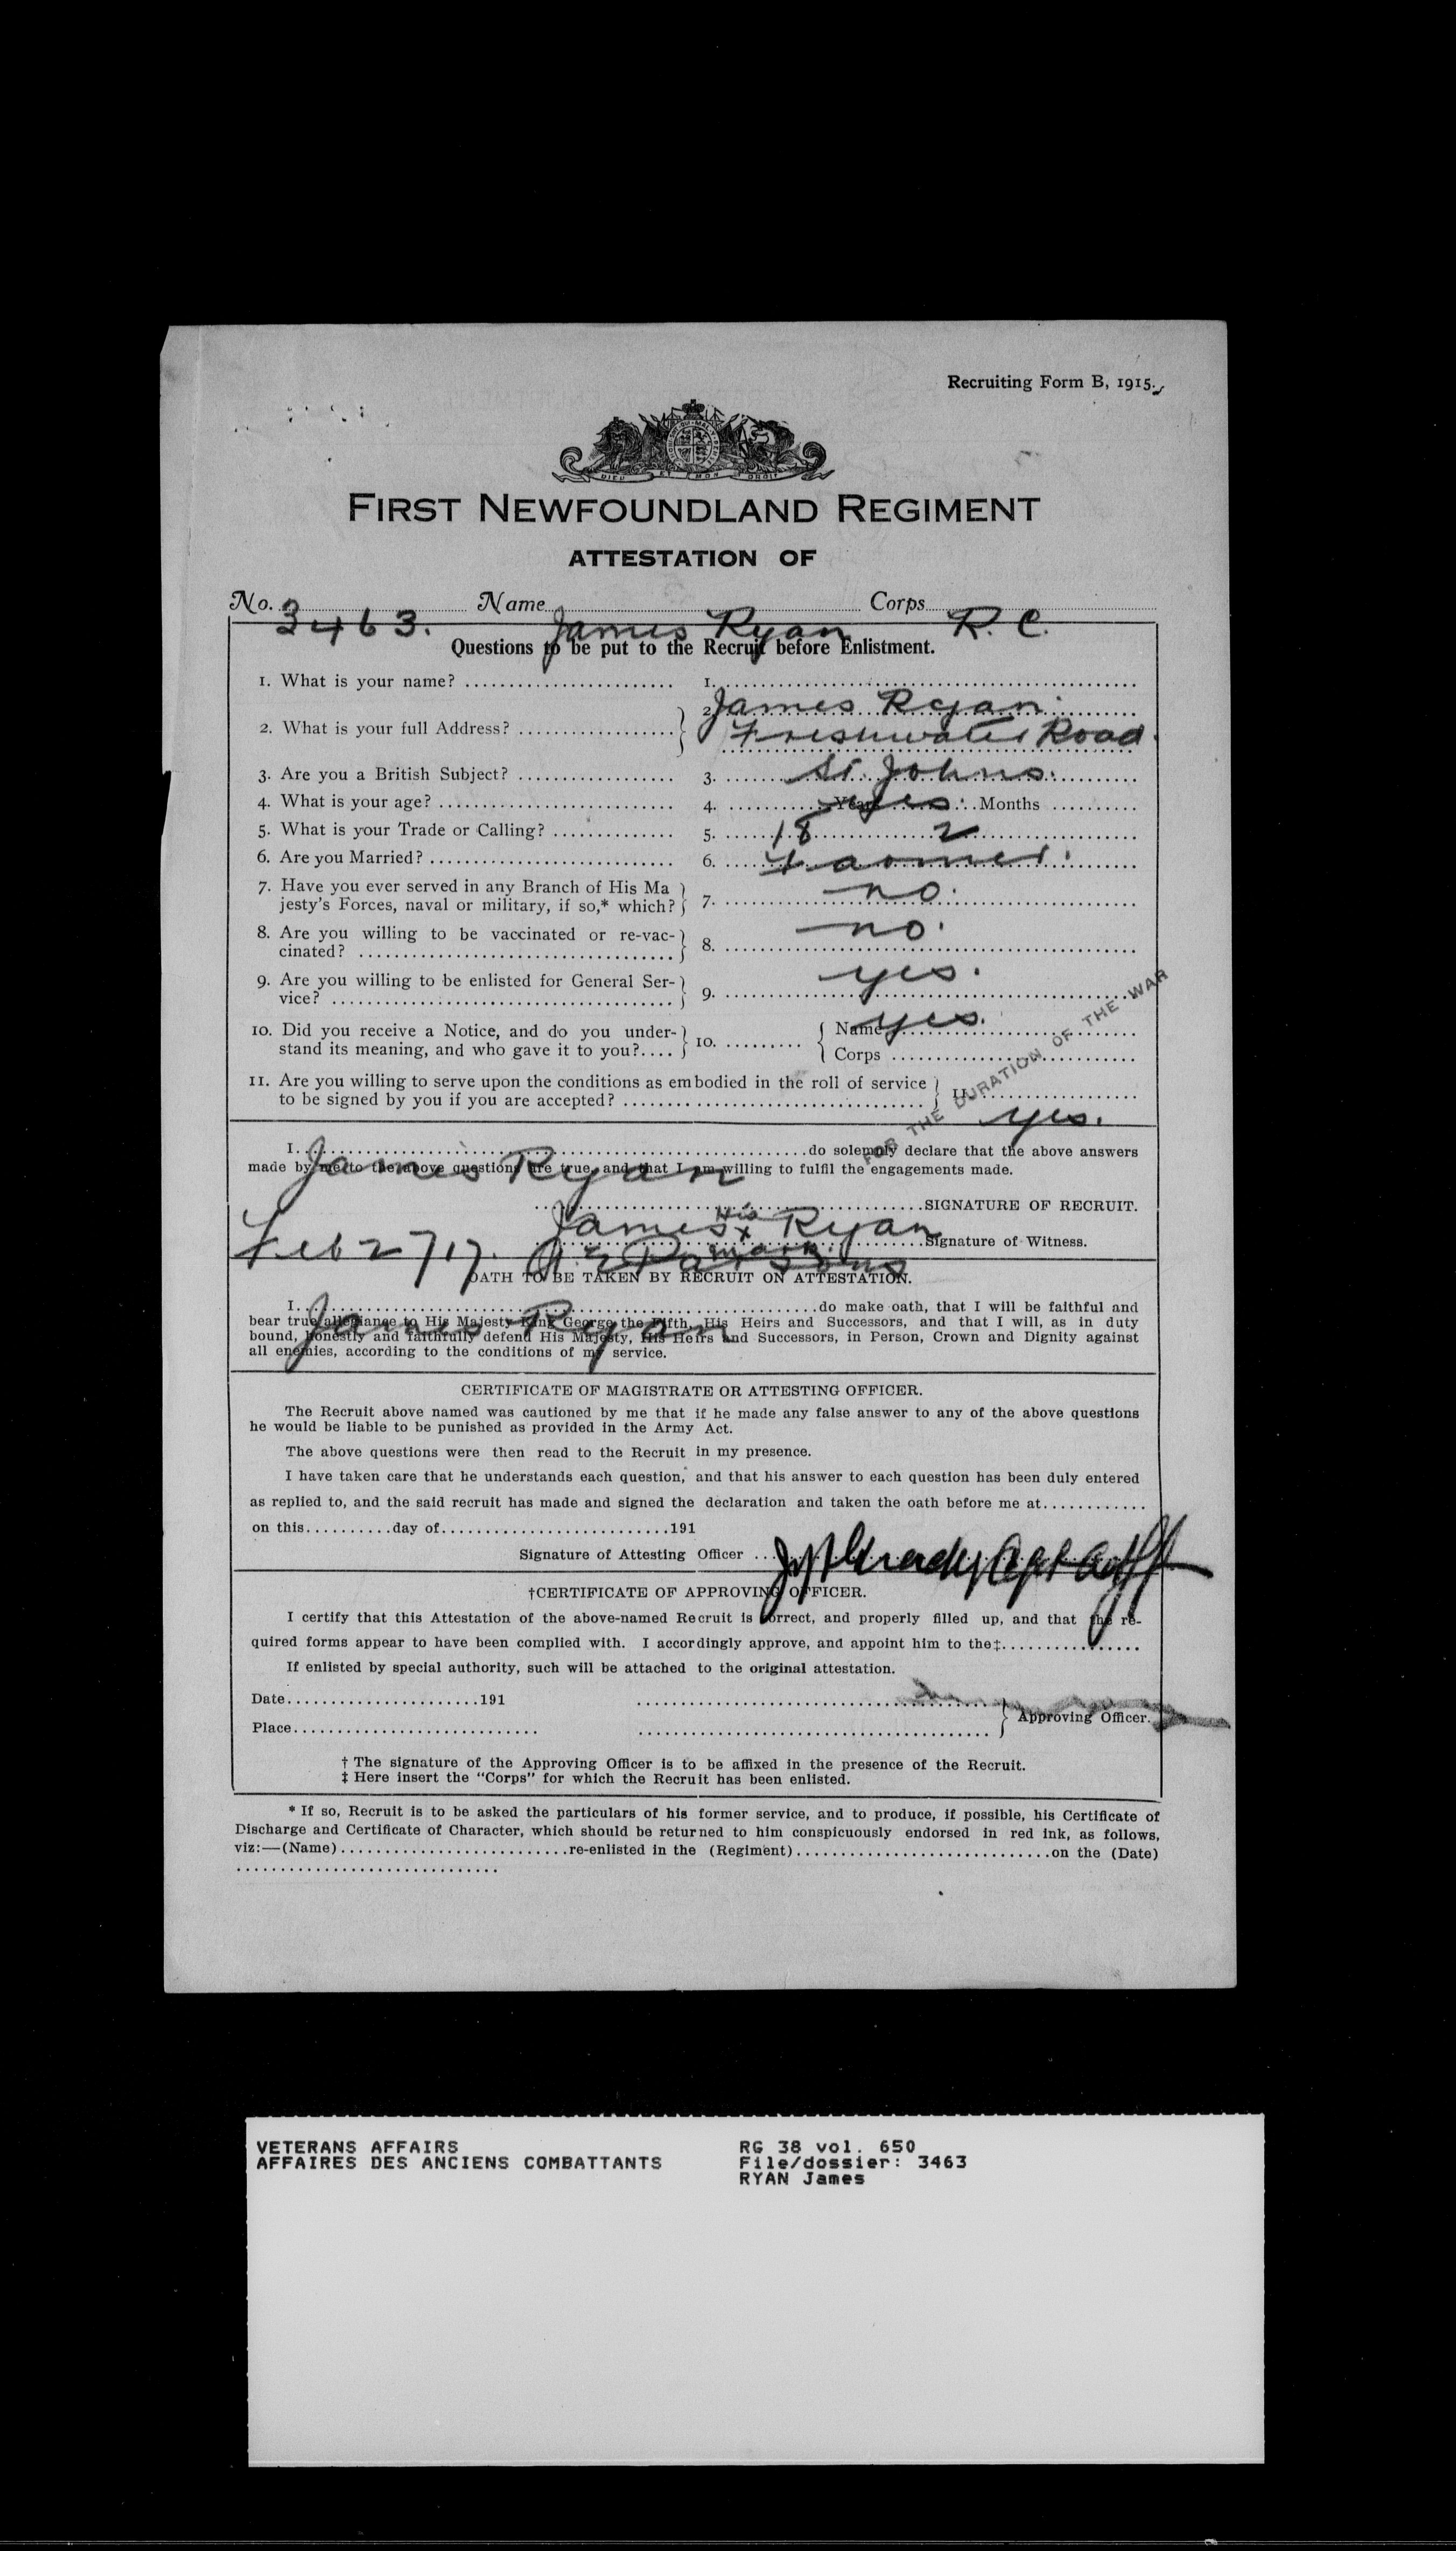 Recruiting Form B, 1915.
DIEU ET MON DROIT
FIRST NEWFOUNDLAND REGIMENT
ATTESTATION OF
No. 3463. Name James Ryan Corps R. C.
Questions to be put to the Recruit before Enlistment.
1. What is your name? 1. James Ryan.
2. What is your full Address? 2. Freshwater Road
3. Are you a British Subject? 3. St. Johns.
4. What is your age? 4. Years yes. Months
5. What is your Trade or Calling? 5. 18 2
6. Are you Married? 6. Farmer.
7. Have you ever served in any Branch of His Ma
jesty's Forces, naval or military, if so,* which? 7. no.
8. Are you willing to be vaccinated or re-vac-
cinated? 8. no.
9. Are you willing to be enlisted for General Ser-
vice? 9. yes.
10. Did you receive a Notice, and do you under-
stand its meaning, and who gave it to you?.... 10. Name yes.
Corps
11. Are you willing to serve upon the conditions as embodied in the roll of service
to be signed by you if you are accepted? 11. yes.
FOR THE DURATION OF THE WAR
I James Ryan do solemnly declare that the above answers
made by me to the above questions are true, and that I am willing to fulfil the engagements made.
James His x mark Ryan SIGNATURE OF RECRUIT.
Feb 27/17. Parsons Signature of Witness.
OATH TO BE TAKEN BY RECRUIT ON ATTESTATION.
I James Ryan do make oath, that I will be faithful and
bear true allegiance to His Majesty King George the Fifth, His Heirs and Successors, and that I will, as in duty
bound, honestly and faithfully defend His Majesty, His Heirs and Successors, in Person, Crown and Dignity against
all enemies, according to the conditions of my service.
CERTIFICATE OF MAGISTRATE OR ATTESTING OFFICER.
The Recruit above named was cautioned by me that if he made any false answer to any of the above questions
he would be liable to be punished as provided in the Army Act.
The above questions were then read to the Recruit in my presence.
I have taken care that he understands each question, and that his answer to each question has been duly entered
as replied to, and the said recruit has made and signed the declaration and taken the oath before me at
on this day of 191
Signature of Attesting Officer
†CERTIFICATE OF APPROVING OFFICER.
I certify that this Attestation of the above-named Recruit is correct, and properly filled up, and that the re-
quired forms appear to have been complied with. I accordingly approve, and appoint him to the‡
If enlisted by special authority, such will be attached to the original attestation.
Date 191
Approving Officer.
Place
† The signature of the Approving Officer is to be affixed in the presence of the Recruit.
‡ Here insert the "Corps" for which the Recruit has been enlisted.
* If so, Recruit is to be asked the particulars of his former service, and to produce, if possible, his Certificate of
Discharge and Certificate of Character, which should be returned to him conspicuously endorsed in red ink, as follows,
viz:—(Name) re-enlisted in the (Regiment) on the (Date)
VETERANS AFFAIRS RG 38 vol. 650
AFFAIRES DES ANCIENS COMBATTANTS File/dossier: 3463
RYAN James